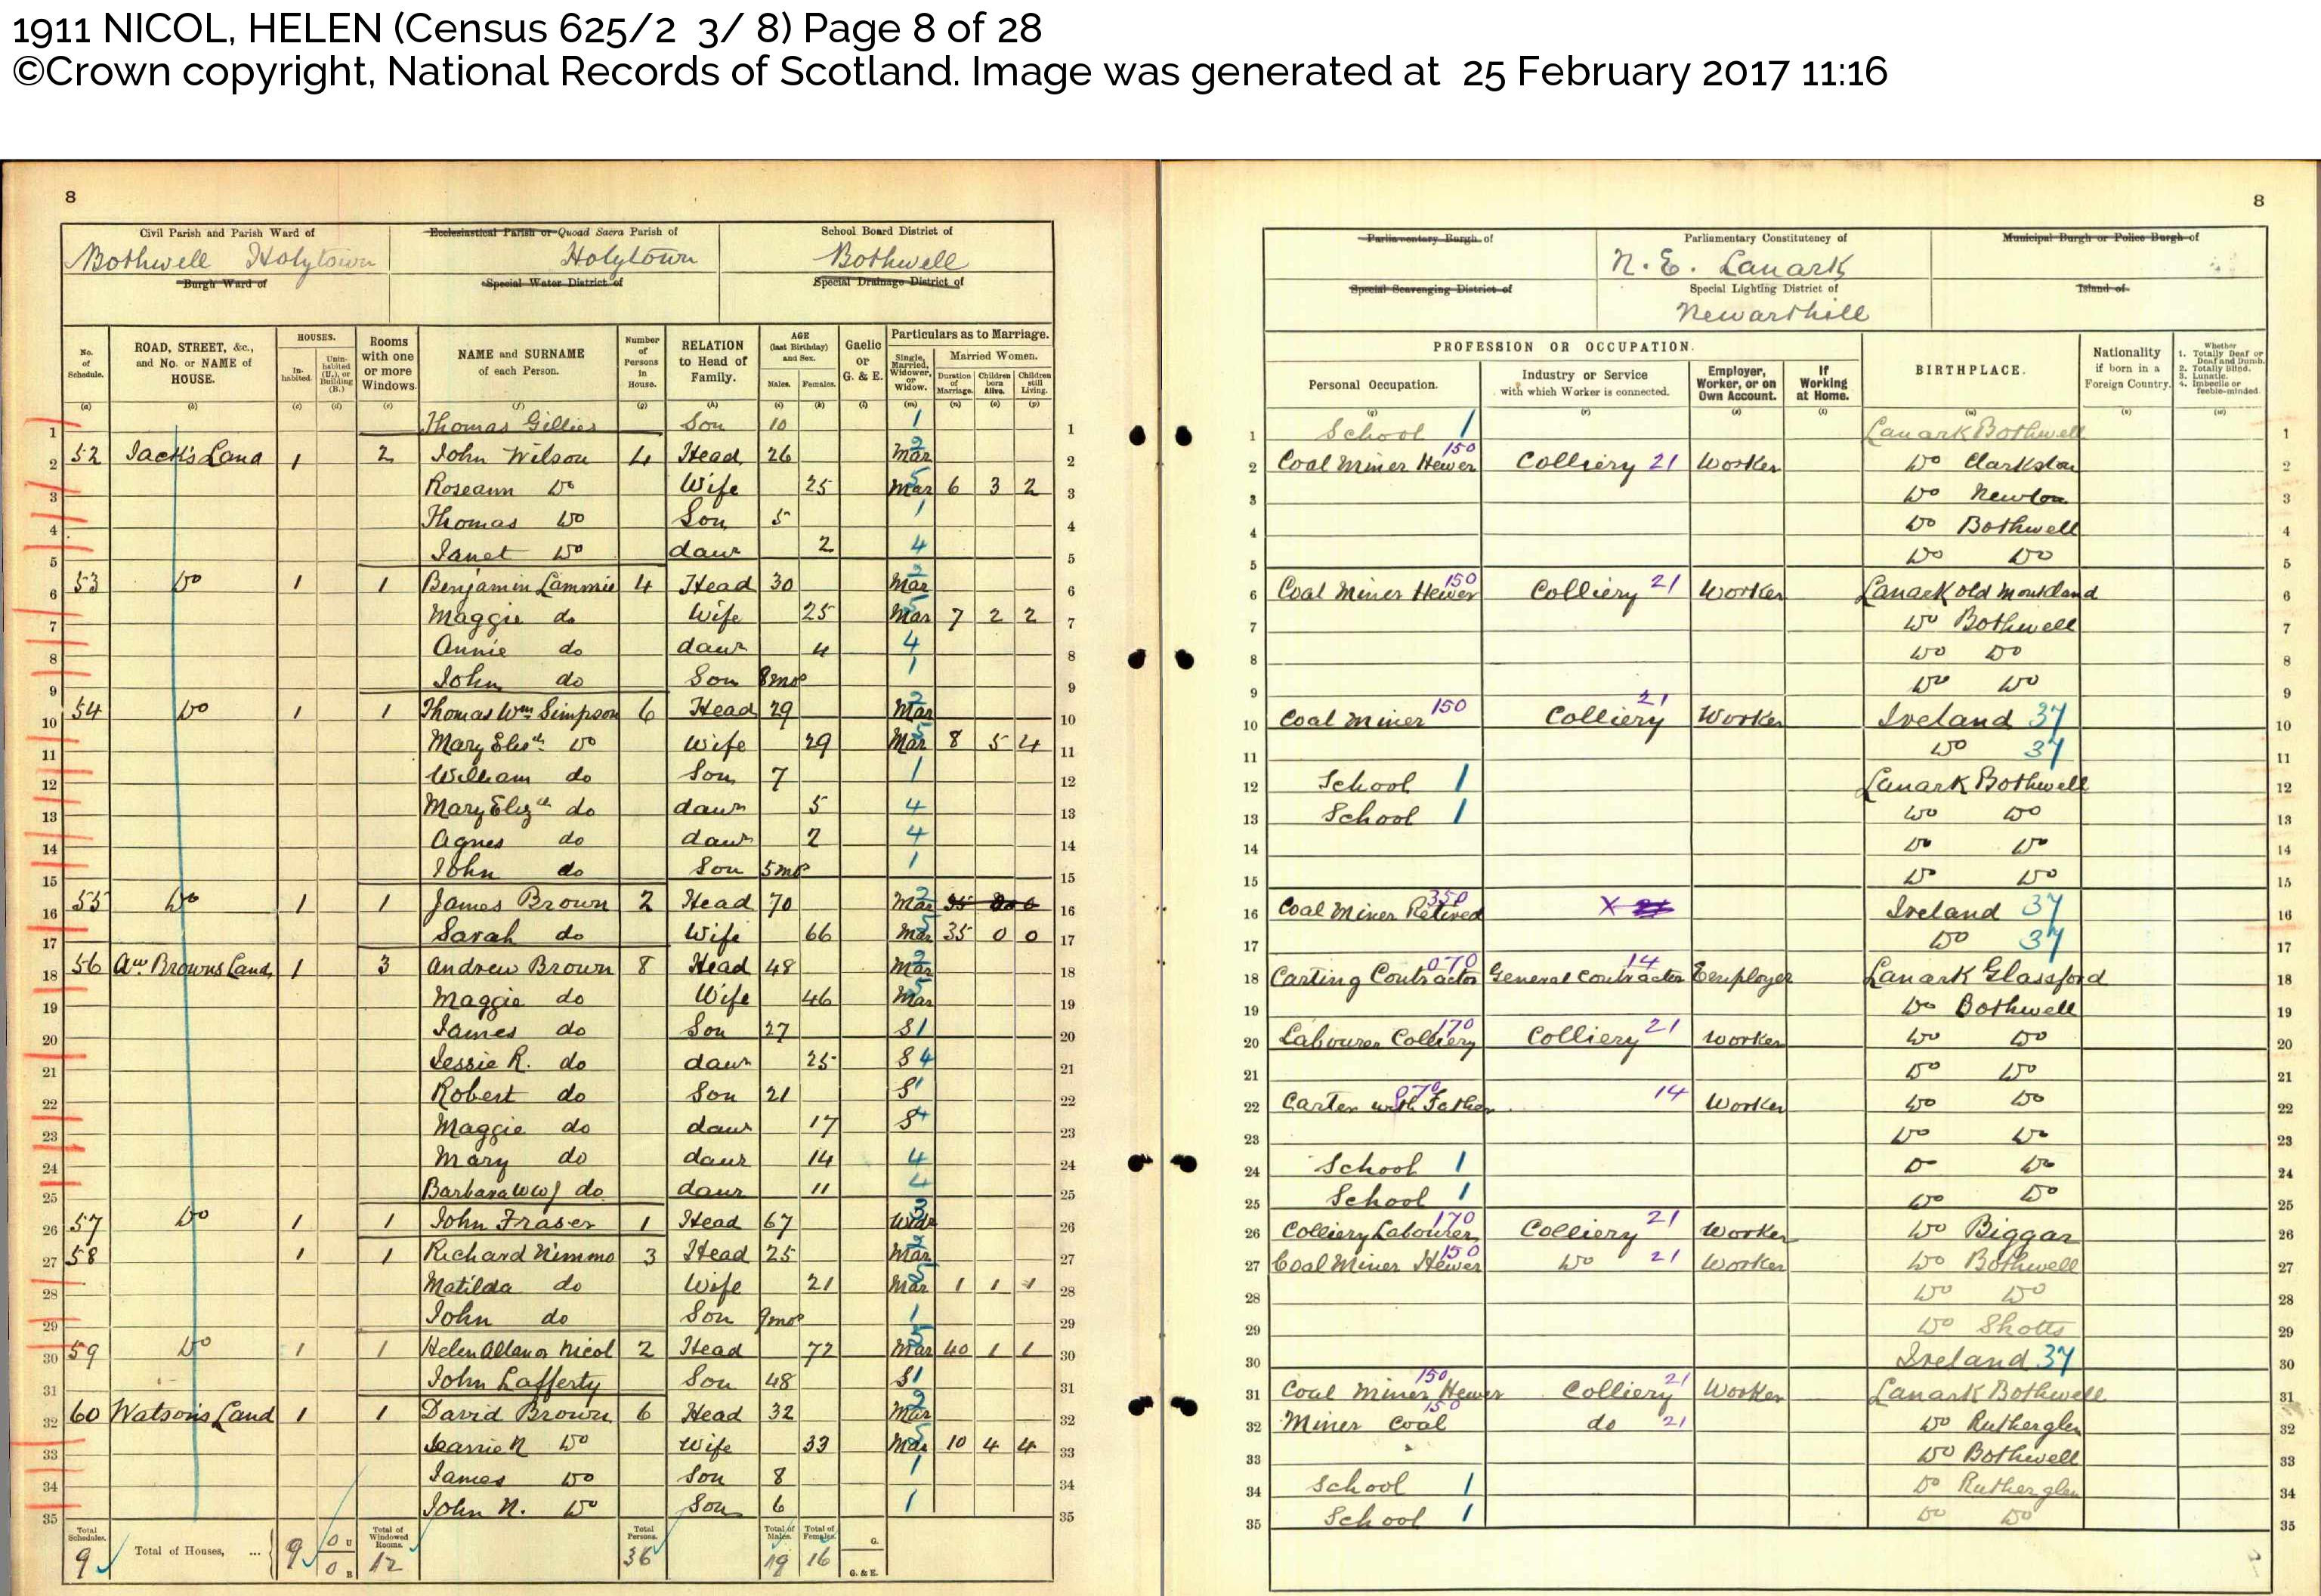 1911 NICOL, HELEN (Census 625/2 3/ 8) Page 8 of 28
©Crown copyright, National Records of Scotland. Image was generated at 25 February 2017 11:16
8
Civil Parish and Parish Ward of
Bothwell Holytown
Burgh Ward of
Ecclesiastical Parish or Quoad Sacra Parish of
Holytown
Special Water District of
School Board District of
Bothwell
Special Drainage District of
No. of Schedule.
ROAD, STREET, &c., and No. or NAME of HOUSE.
HOUSES.
Inhabited.
Uninhabited (U.), or Building (B.)
Rooms with one or more Windows.
NAME and SURNAME of each Person.
Number of Persons in House.
RELATION to Head of Family.
AGE (last Birthday) and Sex.
Males.
Females.
Gaelic or G. & E.
Particulars as to Marriage.
Single, Married, Widower, or Widow.
Married Women.
Duration of Marriage.
Children born Alive.
Children still Living.
(a) (b) (c) (d) (e) (f) (g) (h) (i) (k) (l) (m) (n) (o) (p)
1 Thomas Gillies Son 10 1 1
2 52 Jack's Land 1 2 John Wilson 4 Head 26 Mar 2 2
3 Roseann Do Wife 25 Mar 5 6 3 2 3
4 Thomas Do Son 5 1 4
5 Janet Do daur 2 4 5
6 53 Do 1 1 Benjamin Lammie 4 Head 30 Mar 2 6
7 Maggie do Wife 25 Mar 5 7 2 2 7
8 Annie do daur 4 4 8
9 John do Son 8mos 1 9
10 54 Do 1 1 Thomas Wm Simpson 6 Head 29 Mar 2 10
11 Mary Elizth Do Wife 29 Mar 5 8 5 4 11
12 William do Son 7 1 12
13 Mary Elizth do daur 5 4 13
14 Agnes do daur 2 4 14
15 John do Son 5mos 1 15
16 55 Do 1 1 James Brown 2 Head 70 Mar 2 16
17 Sarah do Wife 66 Mar 5 35 0 0 17
18 56 Aw Browns Land 1 3 Andrew Brown 8 Head 48 Mar 2 18
19 Maggie do Wife 46 Mar 5 19
20 James do Son 27 S 1 20
21 Jessie R. do daur 25 S 4 21
22 Robert do Son 21 S 1 22
23 Maggie do daur 17 S 4 23
24 Mary do daur 14 4 24
25 Barbara do daur 11 4 25
26 57 Do 1 1 John Fraser 1 Head 67 Widr 3 26
27 58 1 1 Richard Nimmo 3 Head 25 Mar 2 27
28 Matilda do Wife 21 Mar 5 1 1 1 28
29 John do Son 9mos 1 29
30 59 Do 1 1 Helen Allan or Nicol 2 Head 72 Mar 5 40 1 1 30
31 John Lafferty Son 48 S 1 31
32 60 Watson's Land 1 1 David Brown 6 Head 32 Mar 2 32
33 Jeanie N Do Wife 33 Mar 5 10 4 4 33
34 James Do Son 8 1 34
35 John N. Do Son 6 1 35
Total Schedules. 9
Total of Houses, ... 9 0 U 0 B
Total of Windowed Rooms. 12
Total Persons. 36
Total of Males. 19
Total of Females. 16
G.
G. & E.
8
Parliamentary Burgh of
Special Scavenging District of
Parliamentary Constitutency of
N. E. Lanark
Special Lighting District of
Newarthill
Municipal Burgh or Police Burgh of
Island of
PROFESSION OR OCCUPATION.
Personal Occupation.
Industry or Service with which Worker is connected.
Employer, Worker, or on Own Account.
If Working at Home.
BIRTHPLACE.
Nationality if born in a Foreign Country.
Whether
1. Totally Deaf or Deaf and Dumb.
2. Totally Blind.
3. Lunatic.
4. Imbecile or feeble-minded.
(q) (r) (s) (t) (u) (v) (w)
1 School 1 Lanark Bothwell 1
2 Coal Miner Hewer 150 Colliery 21 Worker Do Clarkston 2
3 Do Newton 3
4 Do Bothwell 4
5 Do Do 5
6 Coal Miner Hewer 150 Colliery 21 Worker Lanark Old Monkland 6
7 Do Bothwell 7
8 Do Do 8
9 Do Do 9
10 Coal Miner 150 Colliery 21 Worker Ireland 37 10
11 Do 37 11
12 School 1 Lanark Bothwell 12
13 School 1 Do Do 13
14 Do Do 14
15 Do Do 15
16 Coal Miner Retired 350 X 21 Ireland 37 16
17 Do 37 17
18 Carting Contractor 070 General Contractor 14 Employer Lanark Glassford 18
19 Do Bothwell 19
20 Labourer Colliery 170 Colliery 21 Worker Do Do 20
21 Do Do 21
22 Carter with Father 070 14 Worker Do Do 22
23 Do Do 23
24 School 1 Do Do 24
25 School 1 Do Do 25
26 Colliery Labourer 170 Colliery 21 Worker Do Biggar 26
27 Coal Miner Hewer 150 Do 21 Worker Do Bothwell 27
28 Do Do 28
29 Do Shotts 29
30 Ireland 37 30
31 Coal Miner Hewer 150 Colliery 21 Worker Lanark Bothwell 31
32 Miner Coal 150 do 21 Do Rutherglen 32
33 Do Bothwell 33
34 School 1 Do Rutherglen 34
35 School 1 Do Do 35